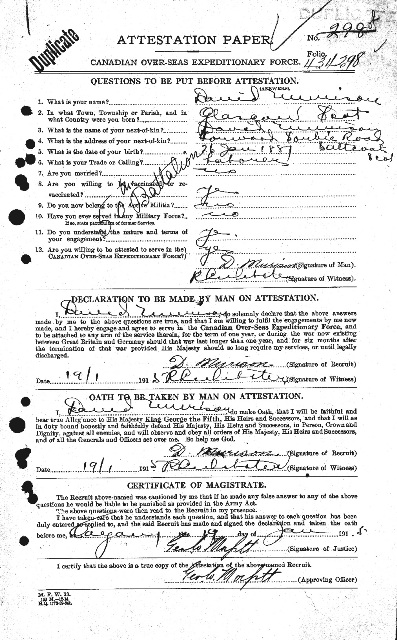 Duplicate
ATTESTATION PAPER.
No.
Folio.
CANADIAN OVER-SEAS EXPEDITIONARY FORCE.
QUESTIONS TO BE PUT BEFORE ATTESTATION.
(ANSWERS)
1. What is your name? David
2. In what Town, Township or Parish, and in
what Country were you born? Glasgow Scot
3. What is the name of your next-of-kin?
4. What is the address of your next-of-kin? Road
Saltcoats
Scot
5. What is the date of your birth? Jan 1887
6. What is your Trade or Calling? Labourer
7. Are you married? no
8. Are you willing to be vaccinated or re-
vaccinated? yes
9. Do you now belong to the Active Militia? no
10. Have you ever served in any Military Force? no
If so, state particulars of former Service.
11. Do you understand the nature and terms of
your engagement? yes
12. Are you willing to be attested to serve in the
CANADIAN OVER-SEAS EXPEDITIONARY FORCE? yes
Battalion
D. (Signature of Man).
(Signature of Witness).
DECLARATION TO BE MADE BY MAN ON ATTESTATION.
I, David do solemnly declare that the above answers
made by me to the above questions are true, and that I am willing to fulfil the engagements by me now
made, and I hereby engage and agree to serve in the Canadian Over-Seas Expeditionary Force, and
to be attached to any arm of the service therein, for the term of one year, or during the war now existing
between Great Britain and Germany should that war last longer than one year, and for six months after
the termination of that war provided His Majesty should so long require my services, or until legally
discharged.
D. (Signature of Recruit)
Date 19/1 191 (Signature of Witness)
OATH TO BE TAKEN BY MAN ON ATTESTATION.
I, David do make Oath, that I will be faithful and
bear true Allegiance to His Majesty King George the Fifth, His Heirs and Successors, and that I will as
in duty bound honestly and faithfully defend His Majesty, His Heirs and Successors, in Person, Crown and
Dignity, against all enemies, and will observe and obey all orders of His Majesty, His Heirs and Successors,
and of all the Generals and Officers set over me. So help me God.
D. (Signature of Recruit)
Date 19/1 191 (Signature of Witness)
CERTIFICATE OF MAGISTRATE.
The Recruit above-named was cautioned by me that if he made any false answer to any of the above
questions he would be liable to be punished as provided in the Army Act.
The above questions were then read to the Recruit in my presence.
I have taken care that he understands each question, and that his answer to each question has been
duly entered as replied to, and the said Recruit has made and signed the declaration and taken the oath
before me, at Calgary this 19 day of Jan 191
Geo. (Signature of Justice)
I certify that the above is a true copy of the Attestation of the above-named Recruit.
Geo. (Approving Officer)
M. F. W. 23.